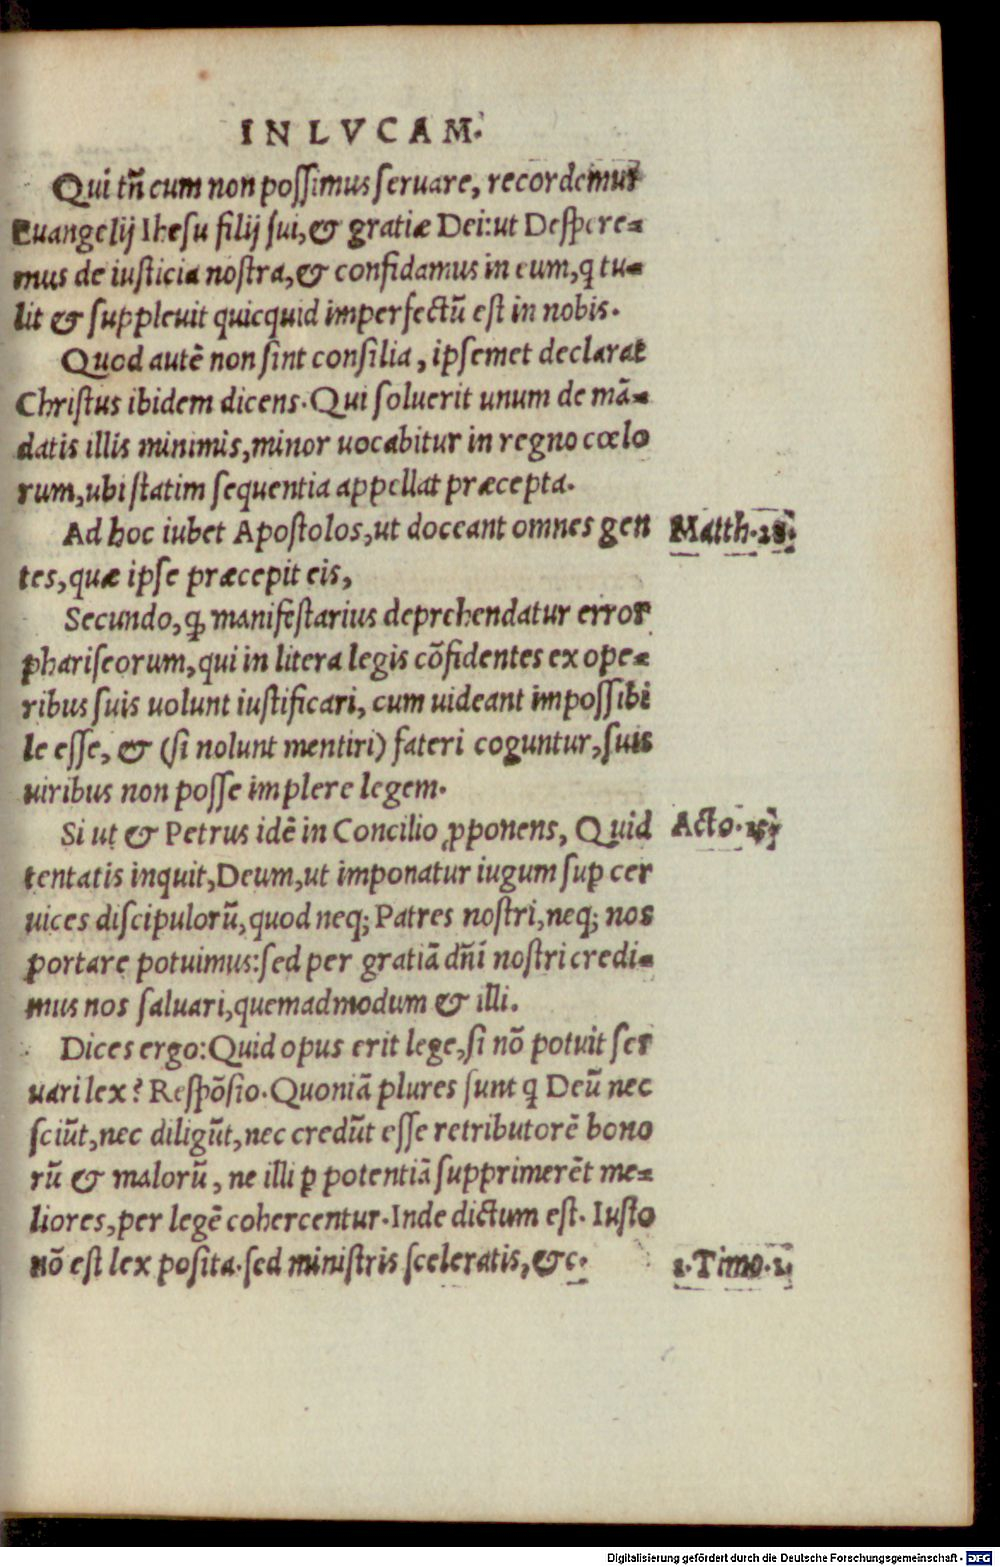 IN LVCAM.
Qui tñ eum non possimus seruare, recordemur
Euangelij Ihesu filij sui, & gratiæ Dei: ut Despere=
mus de iusticia nostra, & confidamus in eum, q̃ tu=
lit & suppleuit quicquid imperfectũ est in nobis.
Quod autẽ non sint consilia, ipsemet declarat
Christus ibidem dicens. Qui soluerit unum de mã=
datis illis minimis, minor uocabitur in regno cœlo
rum, ubi statim sequentia appellat præcepta.
Ad hoc iubet Apostolos, ut doceant omnes gen
Matth. 28.
tes, quæ ipse præcepit eis,
Secundo, ꝙ manifestarius deprehendatur error
phariseorum, qui in litera legis cõfidentes ex ope=
ribus suis uolunt iustificari, cum uideant impossibi
le esse, & (si nolunt mentiri) fateri coguntur, suis
uiribus non posse implere legem.
Si ut & Petrus idẽ in Concilio ꝓponens, Quid
Acto. 15.
tentatis inquit, Deum, ut imponatur iugum suꝑ cer
uices discipulorũ, quod neq; Patres nostri, neq; nos
portare potuimus: sed per gratiã dñi nostri credi=
mus nos saluari, quemadmodum & illi.
Dices ergo: Quid opus erit lege, si nõ potuit ser
uari lex? Respõsio. Quoniã plures sunt q̃ Deũ nec
sciũt, nec diligũt, nec credũt esse retributorẽ bono
rũ & malorũ, ne illi ꝑ potentiã supprimerẽt me=
liores, per legẽ cohercentur. Inde dictum est. Iusto
nõ est lex posita. sed ministris sceleratis, &c.
1. Timo. 1.
Digitalisierung gefördert durch die Deutsche Forschungsgemeinschaft - DFG